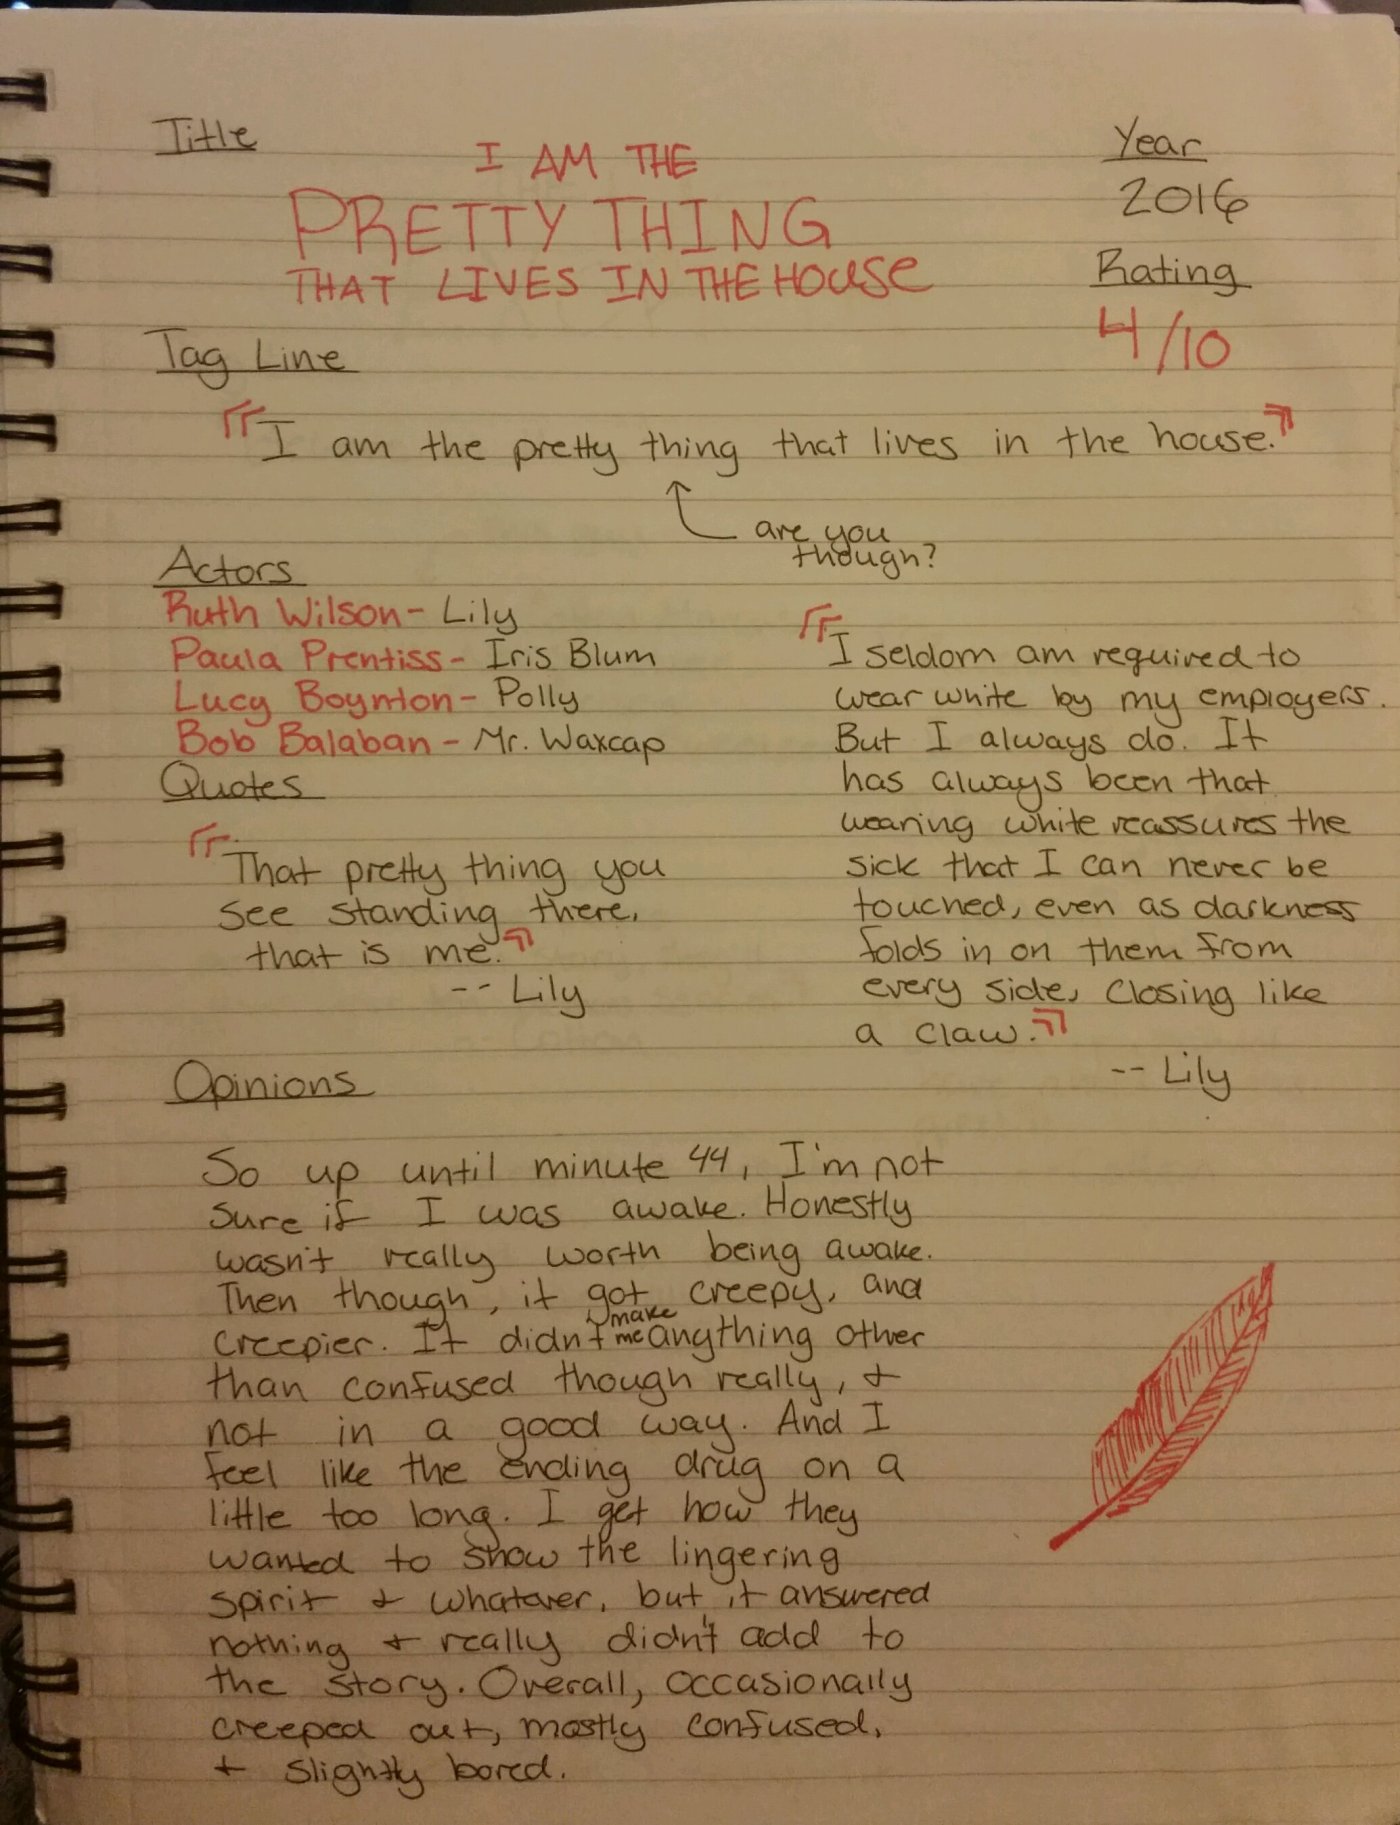 Title
I AM THE
PRETTY THING
THAT LIVES IN THE HOUSE
Year
2016
Rating
4/10
Tag Line
"I am the pretty thing that lives in the house."
are you
though?
Actors
Ruth Wilson - Lily
Paula Prentiss - Iris Blum
Lucy Boynton - Polly
Bob Balaban - Mr. Waxcap
Quotes
"That pretty thing you
see standing there,
that is me."
-- Lily
"I seldom am required to
wear white by my employers.
But I always do. It
has always been that
wearing white reassures the
sick that I can never be
touched, even as darkness
folds in on them from
every side, closing like
a claw."
-- Lily
Opinions
So up until minute 44, I'm not
sure if I was awake. Honestly
wasn't really worth being awake.
Then though, it got creepy, and
creepier. It didn't make me anything other
than confused though really, &
not in a good way. And I
feel like the ending drug on a
little too long. I get how they
wanted to show the lingering
spirit & whatever, but it answered
nothing & really didn't add to
the story. Overall, occasionally
creeped out, mostly confused,
& slightly bored.